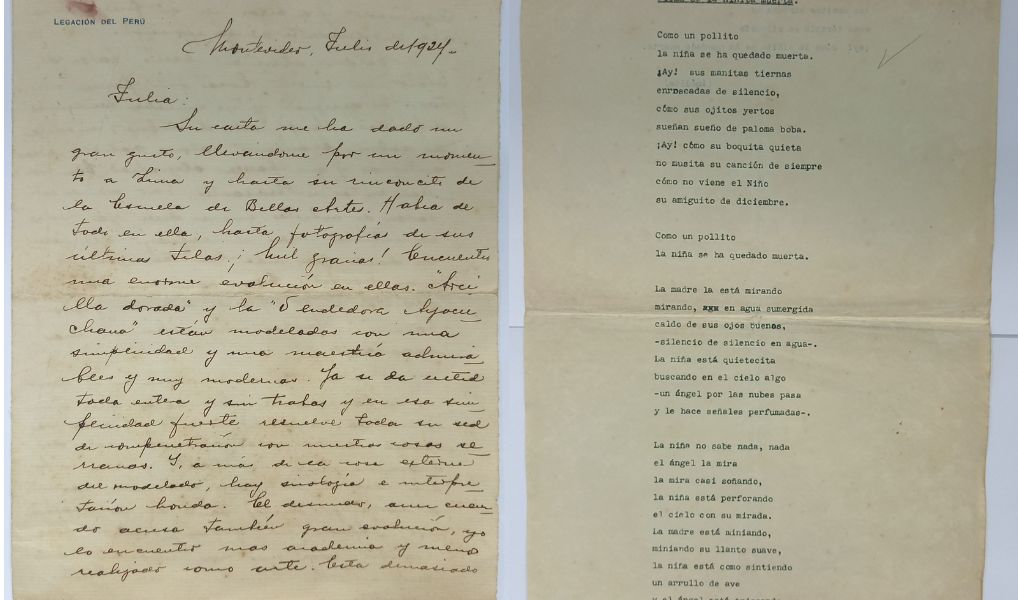 LEGACIÓN DEL PERÚ
Montevideo, Julio de 1924.
Julia:
Su carta me ha dado un
gran gusto, llevándome por un momen-
to a Lima y hasta su rinconcito de
la Escuela de Bellas Artes. Había de
todo en ella, hasta fotografías de sus
últimas telas. ¡Mil gracias! Encuentro
una enorme evolución en ellas. "Arci-
lla dorada" y la "Vendedora Ayacu-
chana" están modeladas con una
simplicidad y una maestría admira-
bles y muy modernas. Ya se da usted
toda entera y sin trabas y en esa sim-
plicidad fuerte resuelve toda su sed
de compenetración con nuestras cosas se-
rranas. Y, a más de la cosa externa
del modelado, hay sicología e interpre-
tación honda. El desnudo, aun cuan-
do acusa también gran evolución, yo
lo encuentro mas academia y menos
realizado como arte. Esta demasiado
de la niñita muerta.
Como un pollito
la niña se ha quedado muerta.
¡Ay! sus manitas tiernas
enroscadas de silencio,
cómo sus ojitos yertos
sueñan sueño de paloma boba.
¡Ay! cómo su boquita quieta
no musita su canción de siempre
cómo no viene el Niño
su amiguito de diciembre.
Como un pollito
la niña se ha quedado muerta.
La madre la está mirando
mirando, en agua sumergida
caldo de sus ojos buenos,
-silencio de silencio en agua-.
La niña está quietecita
buscando en el cielo algo
-un ángel por las nubes pasa
y le hace señales perfumadas-.
La niña no sabe nada, nada
el ángel la mira
la mira casi soñando,
la niña está perforando
el cielo con su mirada.
La madre está miniando,
miniando su llanto suave,
la niña está como sintiendo
un arrullo de ave
y el ángel está